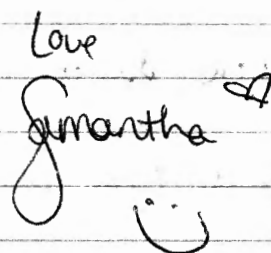 Love
Samantha